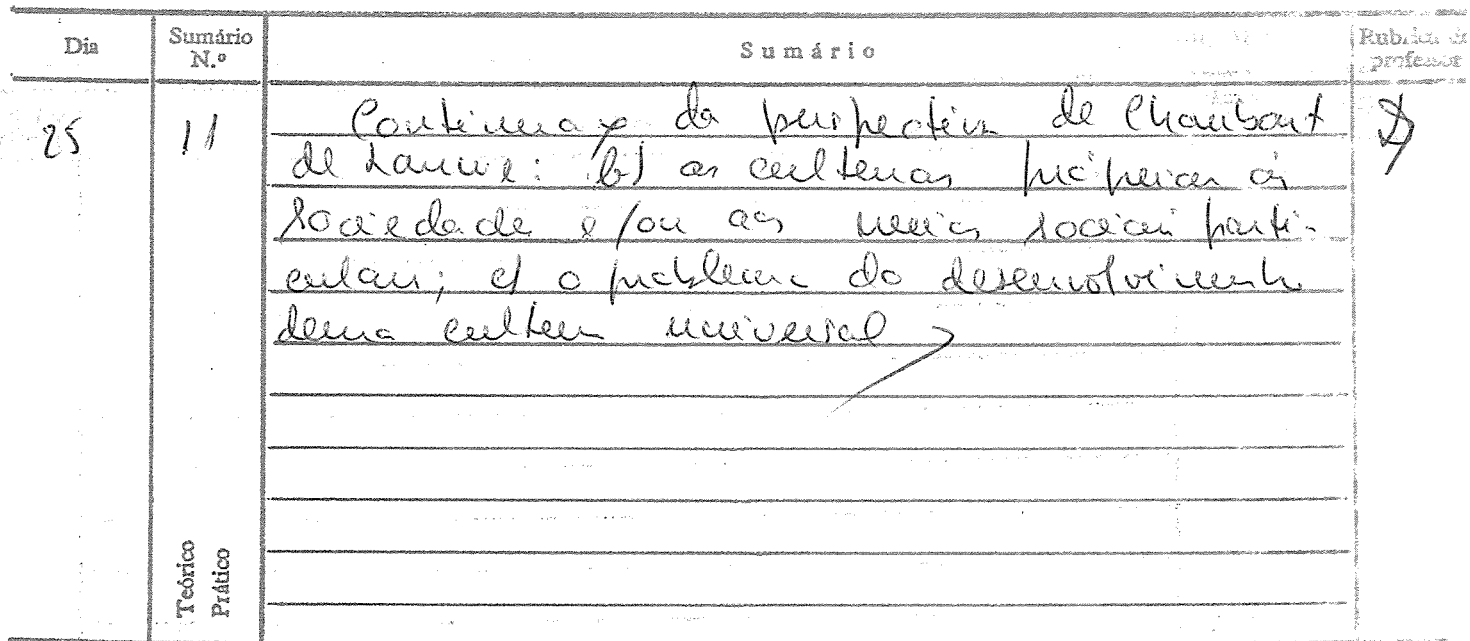 Dia Sumário N.º Sumário Rubrica do professor
25 11 Continuação da perspectiva de Chombart
de Lauwe: b) as culturas próprias às
sociedade e/ou aos meios sociais parti-
culares; c) o problema do desenvolvimento
duma cultura universal
Teórico
Prático